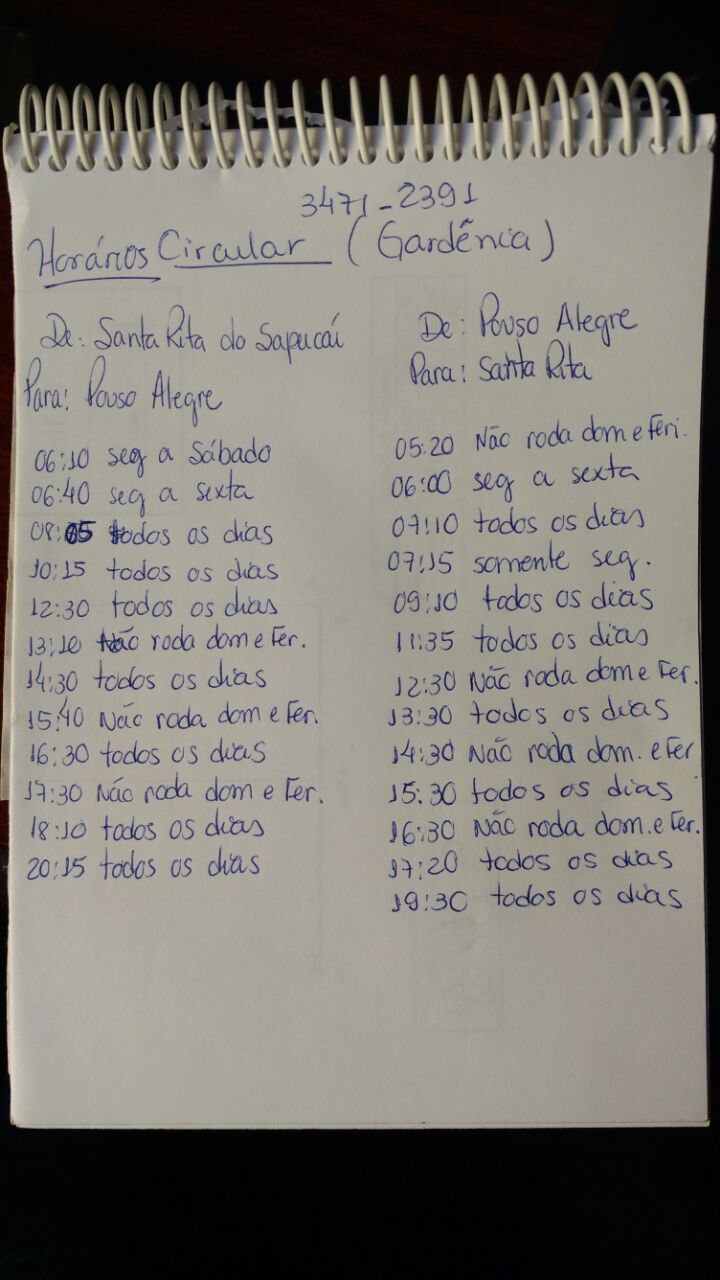 3471-2391
Horários Circular (Gardênia)
De: Santa Rita do Sapucaí
Para: Pouso Alegre
06:10 seg a Sábado
06:40 seg a sexta
08:05 todos os dias
10:15 todos os dias
12:30 todos os dias
13:10 Não roda dom e Fer.
14:30 todos os dias
15:40 Não roda dom e Fer.
16:30 todos os dias
17:30 Não roda dom e Fer.
18:10 todos os dias
20:15 todos os dias
De: Pouso Alegre
Para: Santa Rita
05:20 Não roda dom e Feri.
06:00 seg a sexta
07:10 todos os dias
07:15 somente seg.
09:10 todos os dias
11:35 todos os dias
12:30 Não roda dom e Fer.
13:30 todos os dias
14:30 Não roda dom. e Fer
15:30 todos os dias
16:30 Não roda dom. e Fer.
17:20 todos os dias
19:30 todos os dias